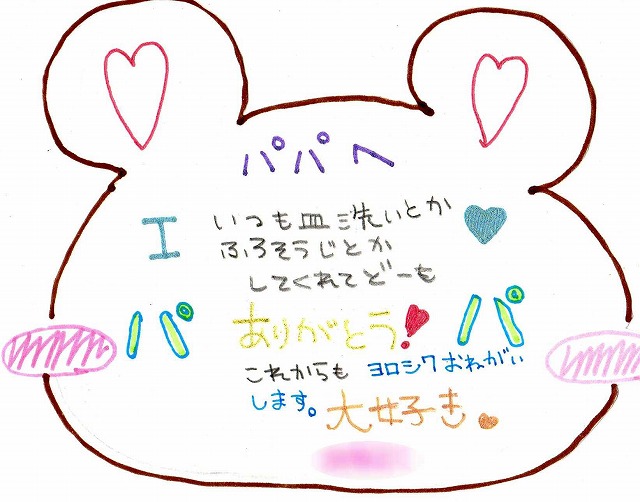 パパへ
I いつも皿洗いとか ♥
ふろそうじとか
してくれてどーも
パ ありがとう! パ
これからも ヨロシクおねがい
します。大好き